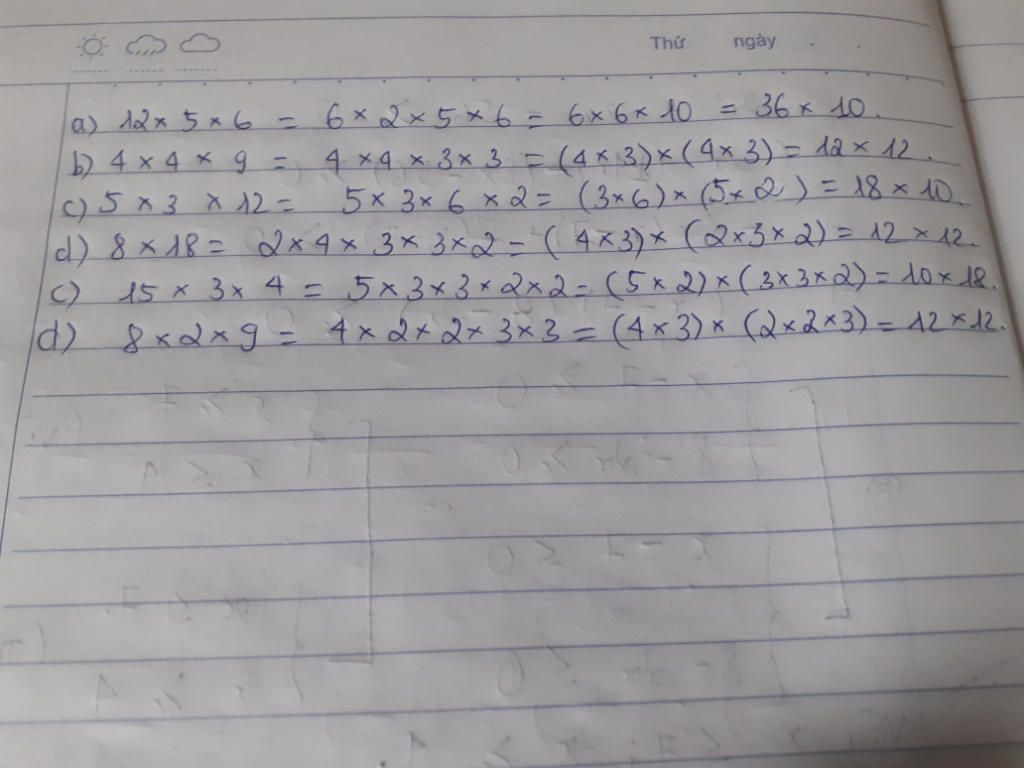 Thứ ngày
a) 12 × 5 × 6 = 6 × 2 × 5 × 6 = 6 × 6 × 10 = 36 × 10.
b) 4 × 4 × 9 = 4 × 4 × 3 × 3 = (4 × 3) × (4 × 3) = 12 × 12.
c) 5 × 3 × 12 = 5 × 3 × 6 × 2 = (3 × 6) × (5 × 2) = 18 × 10.
d) 8 × 18 = 2 × 4 × 3 × 3 × 2 = (4 × 3) × (2 × 3 × 2) = 12 × 12.
c) 15 × 3 × 4 = 5 × 3 × 3 × 2 × 2 = (5 × 2) × (3 × 3 × 2) = 10 × 18.
d) 8 × 2 × 9 = 4 × 2 × 2 × 3 × 3 = (4 × 3) × (2 × 2 × 3) = 12 × 12.